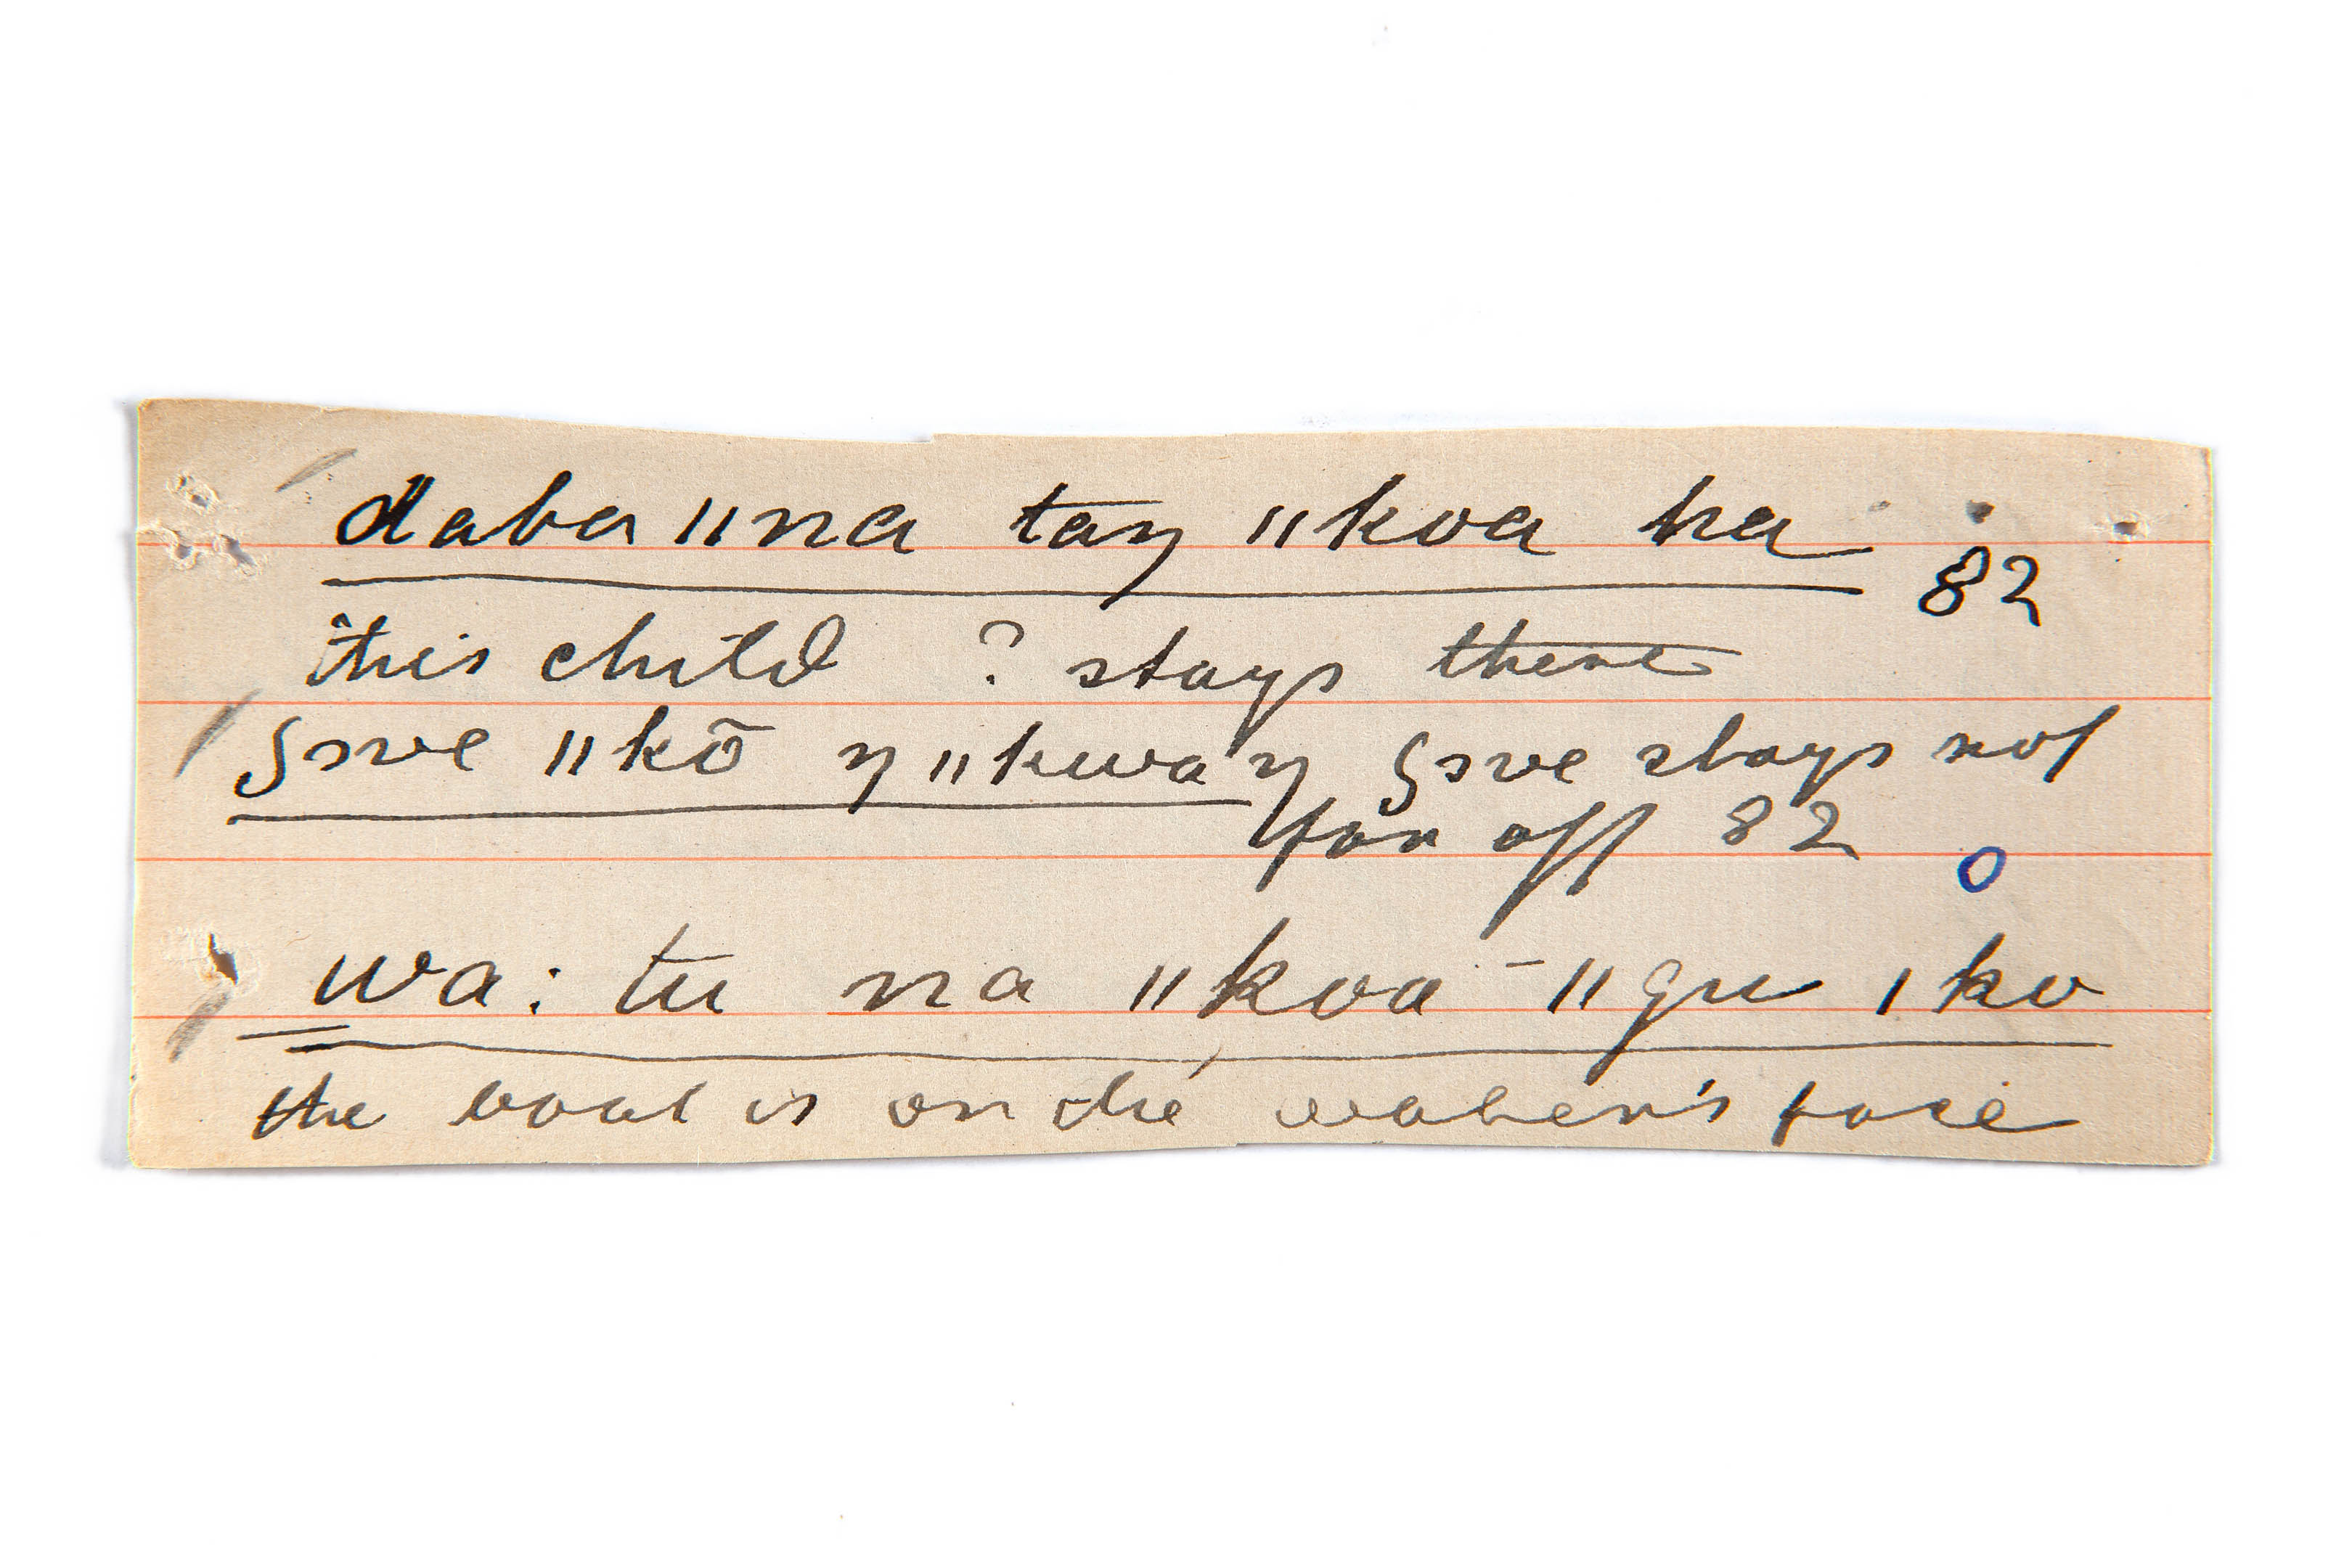 daba ǁna taŋ ǁkoa ha 82
this child ? stays there
ʃɜve ǁkō ŋ ǁkwaŋ ʃɜve stays not
far off 82
o
wa: tu na ǁkoa - ǁgu ǀko
the boat is on the water's face